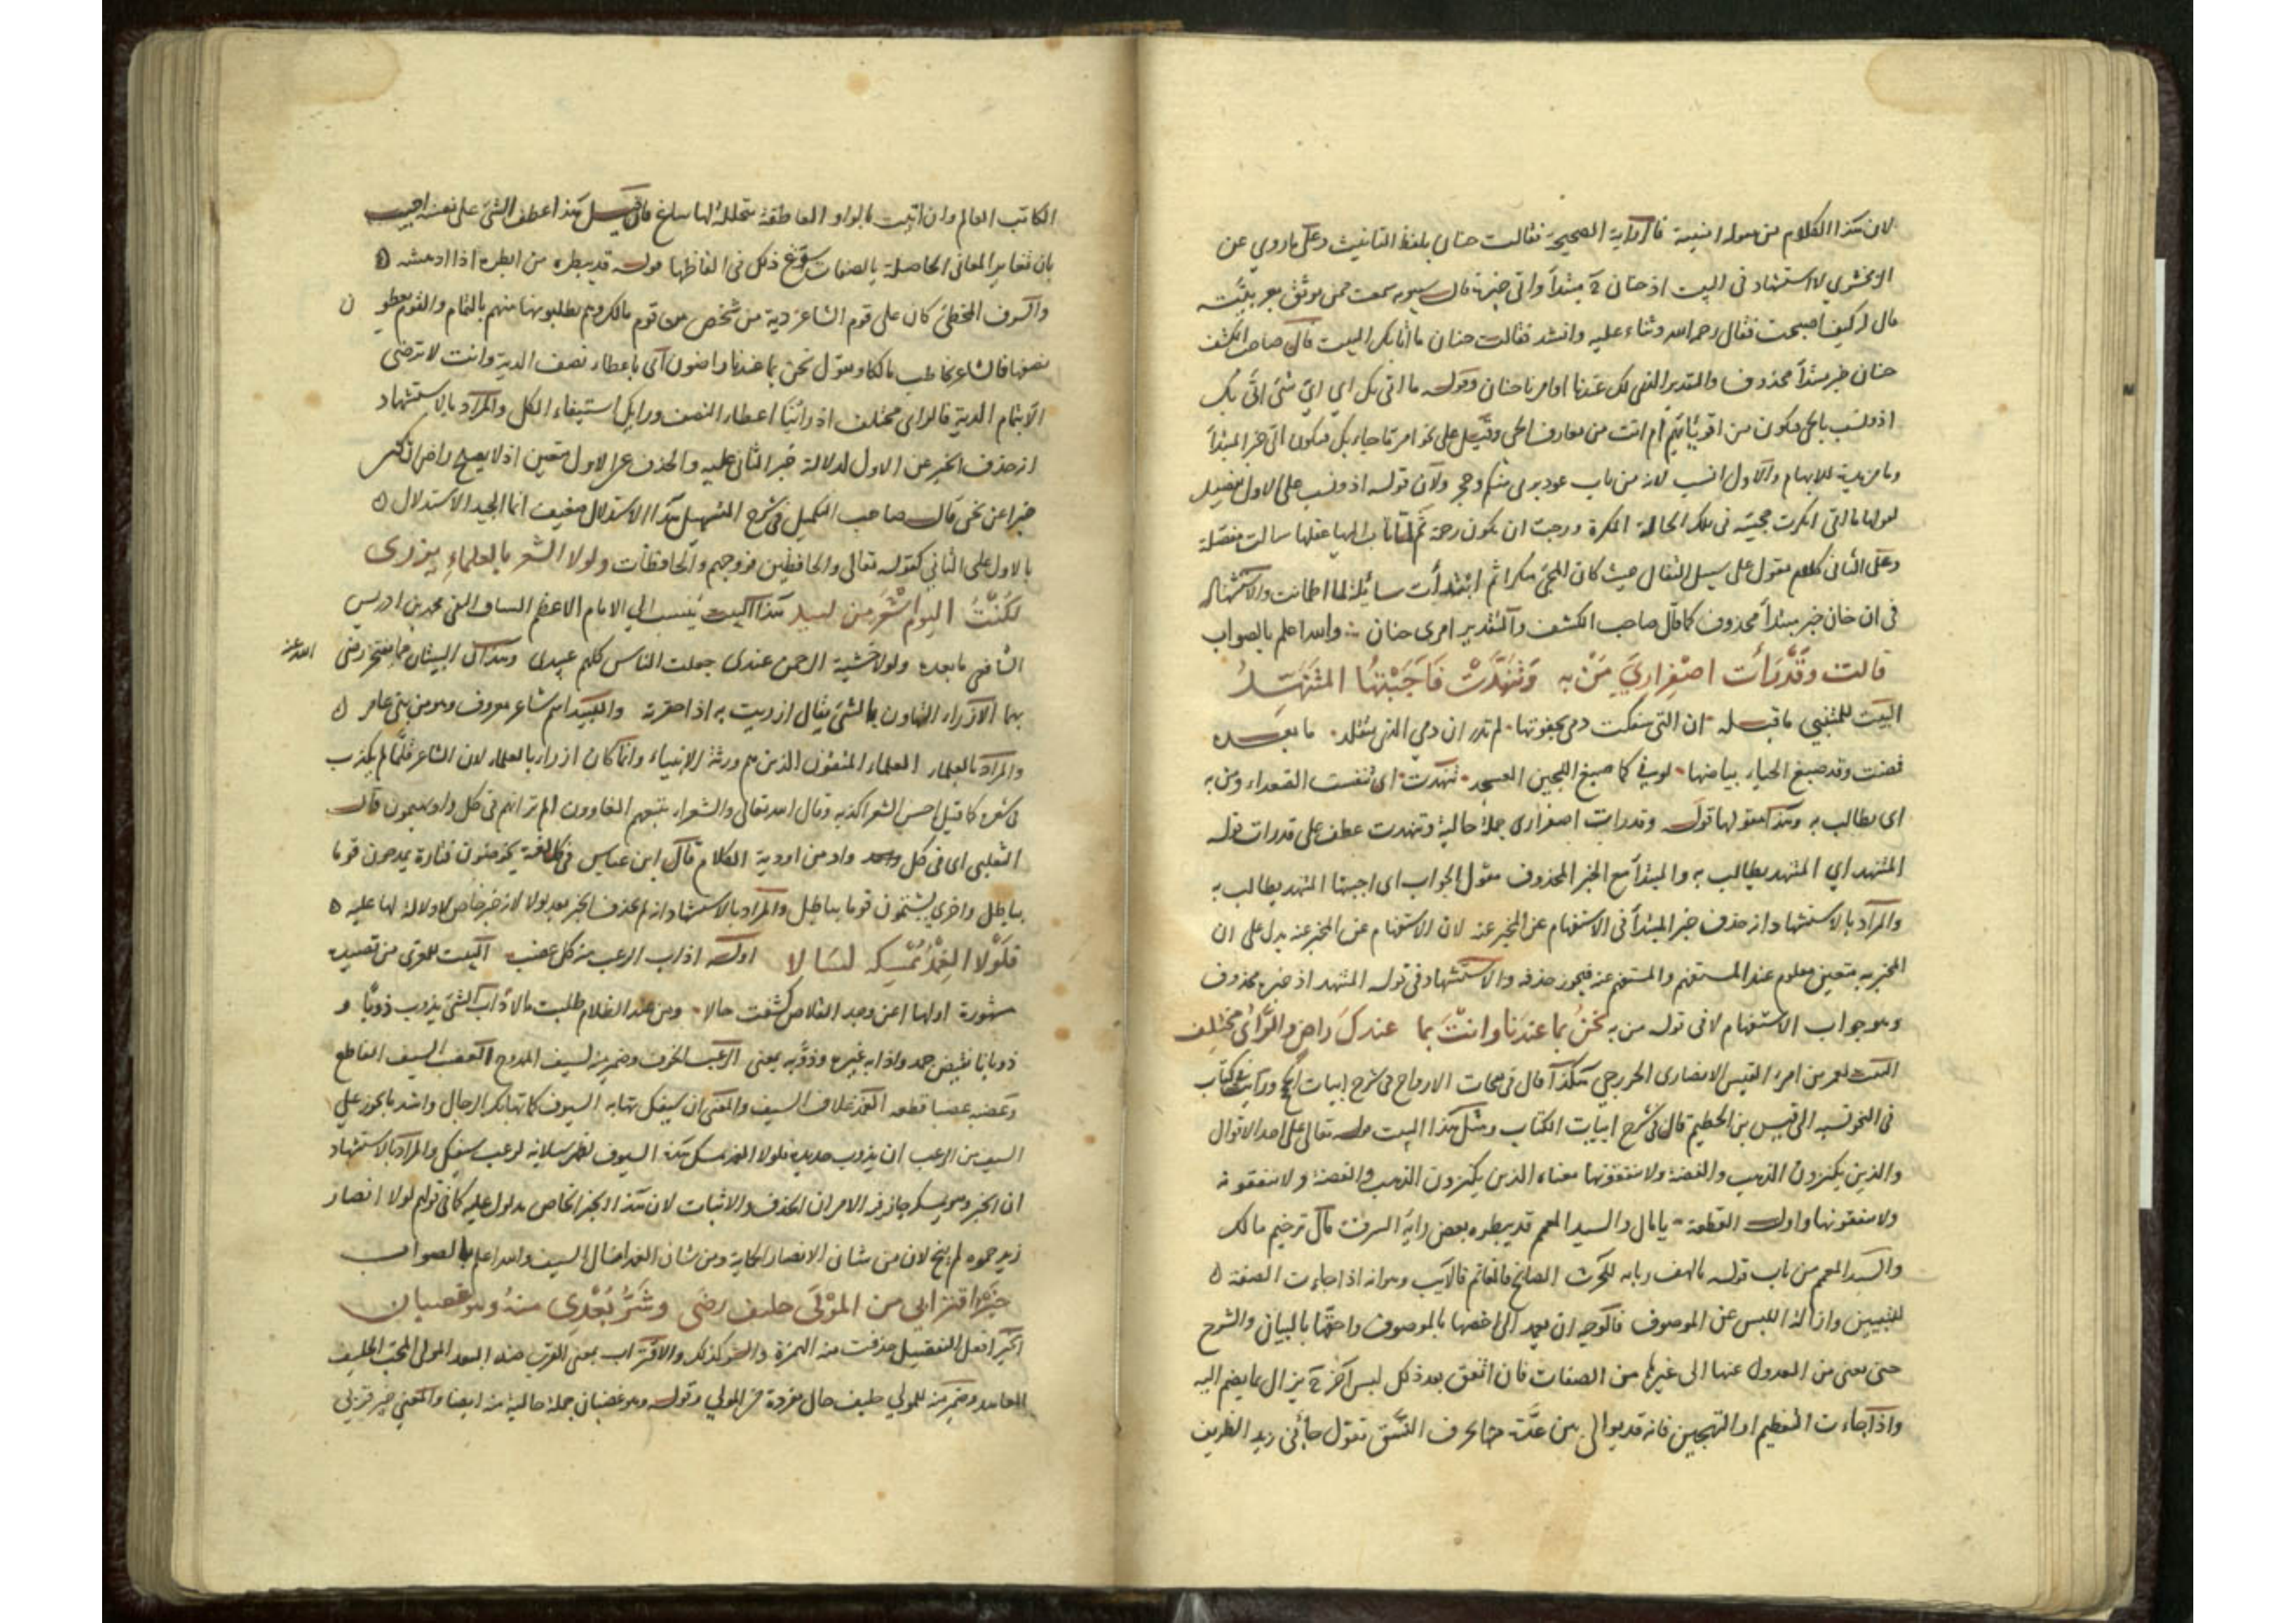 لان هذا الكلام من اجنبية فالرواية الصحيحة فقالت حنان بلفظ التانيث وعلى ما روي عن
الزمخشري لا استشهاد في البيت اذ حنان مبتدأ واتى خبره قال سيبويه سمعت ممن يوثق بعربيته
قال له كيف اصبحت فقال رحمة الله وثناء عليه وانشد فقالت حنان ما اتى بك البيت قال صاحب الكشف
حنان خبر مبتدأ محذوف والتقدير الذي لك عندنا او امرنا حنان وقوله ما اتى بك اي اي شئ اتى بك
اذو نسب بالحي فيكون من اقربائهم ام انت من معارف الحي وقيل على نحو امر ما جاء بك فيكون اتى خبر المبتدأ
وما مزيدة للابهام والاول انسب لانه من باب عود برى منكم وحجر ولان قوله اذو نسب على الاول تفصيل
لقولها ما اتى انكرت مجيئه في تلك الحالة المنكرة ورجت ان يكون رحمة ثم لما تاب اليها عقلها سالت مفصلة
وعلى الثاني كلام مقول على سبيل التفال حيث كان المجئ منكرا ثم ابتدأت سائلة لما اطمانت والاستشهاد
في ان حنان خبر مبتدأ محذوف كما قال صاحب الكشف والتقدير امرى حنان والله اعلم بالصواب
قالت وَقَدْ رَأَت اصْفِرارِيَ مَنْ به وَتَنَهَّدَتْ فَاَجَبْتُهَا المُتَنَهِّدُ
البيت للمتنبي ما قبله ان التي سفكت دمى بجفونها لم تدر ان دمي الذي تتقلد ما بعده
فمضت وقد صبغ الحياء بياضها لوني كما صبغ اللجين العسجد تنهدت اى تنفست الصعداء ومن به
اى يطالب به وهذا مقولها قوله وقد رات اصفرارى جملة حالية وتنهدت عطف على قد رات قوله
المتنهد اي المتنهد يطالب به والمبتدأ مع الخبر المحذوف مقول الجواب اى اجبتها المتنهد يطالب به
والمراد بالاستشهاد انه حذف خبر المبتدأ في الاستفهام عن المخبر عنه لان الاستفهام عن المخبر عنه يدل على ان
المخبر به متعين معلوم عند المستفهم والمستفهم عنه فيجوز حذفه والاستشهاد في قوله المتنهد اذ خبره محذوف
وهو جواب الاستفهام لا في قوله من به نَحنُ بما عندَنا وانتَ بما عندكَ راضٍ والرَّائُ مختلف
البيت لعمر بن امرء القيس الانصارى الخزرجي هكذا قال في نفحات الارواح في شرح ابيات ورأيت في كتاب
في النحو نسبه الى قيس بن الخطيم قال في شرح ابيات الكتاب ومثل هذا البيت قوله تعالى على احد الاقوال
والذين يكنزون الذهب والفضة ولا ينفقونها معناه الذين يكنزون الذهب والفضة ولا ينفقونه
ولا ينفقونها واول القطعة يا مال والسيد المعمم قد يبطره بعض راية السرف قال ترخيم مالك
والسيد المعمم من باب قوله يا لهف زيابة للحارث الصابح فالغانم فالآيب وهو انه اذا جاءت الصفة
للتبيين وازالة اللبس عن الموصوف فالوجه ان يعمد الى اخصها بالموصوف واحقها بالبيان والشرح
حتى يغنى من العدول عنها الى غيرها من الصفات فان اتفق بعد ذلك لبس آخر يزال بما يضم اليه
واذا جاءت للتعظيم او التهجين فانه قد يوالى بين عدة منها بحرف النسق تقول جاءني زيد الظريف
الكاتب العالم وان اتيت بالواو العاطفة متخللة لها ساغ فان قيل هذا عطف الشئ على نفسه اجيب
بان تغاير المعاني الحاصلة بالصفات سوغ ذلك في الفاظها قوله قد يبطره من ابطره اذا ادهشه
والسرف المخطئ كان على قوم الشاعر دية من شخص من قوم مالك وهم يطلبونها منهم بالتمام والقوم يعطون
نصفها فالشاعر يخاطب مالكا ويقول نحن بما عندنا راضون اى باعطاء نصف الدية وانت لا ترضى
الا بتمام الدية فالراى مختلف اذ رأينا اعطاء النصف ورايك استيفاء الكل والمراد بالاستشهاد
انه حذف الخبر من الاول لدلالة خبر الثاني عليه والحذف من الاول متعين اذ لا يصلح راض ان يكون
خبرا عن نحن قال صاحب التكميل في شرح التسهيل هذا الاستدلال ضعيف انما الجيد الاستدلال
بالاول على الثاني كقوله تعالى والحافظين فروجهم والحافظات ولولا الشعر بالعلماءِ يزرى
لكُنْتُ اليَومَ اشْعَرَ مِن لبيد هذا البيت ينسب الي الامام الاعظم محمد بن ادريس
الشافعي ما بعده ولولا خشية الرحمن عندى جعلت الناس كلهم عبيدى وهذان البيتان مما افتخر رضى الله عنه
بهما الازراء التهاون بالشئ يقال ازريت به اذا حقرته ولبيد اسم شاعر معروف وهو من بني عامر
والمراد بالعلماء العلماء المتقون الذين هم ورثة الانبياء وانما كان ازراء بالعلماء لان الشاعر قلما لم يكذب
في شعره كما قيل احسن الشعر اكذبه وقال الله تعالى والشعراء يتبعهم الغاوون الم تر انهم في كل واد يهيمون قال
الثعلبي اى في كل واد من اودية الكلام قال ابن عباس في كل لغو يخوضون فتارة يمدحون قوما
بباطل واخرى يشتمون قوما بباطل والمراد بالاستشهاد انه لم يحذف الخبر بعد لولا لانه خبر خاص لا دلالة لها عليه
فَلَوْلا الغِمْدُ يُمْسِكه لسَالا اوله اذاب الرعب منه كل عضب البيت للمعرى من قصيدة
مشهورة اولها اعن وخد القلاص كشفت حالا ومن عند الظلام طلبت مالا ذاب الشئ يذوب ذوبا و
ذوبانا نقيض جمد واذابه غيره وذوبه بمعنى الرعب الخوف وضمير منه لسيف الممدوح العضب السيف القاطع
وعضبه عضبا قطعه الغمد غلاف السيف والمعنى ان سيفك تهابه السيوف كما تهابك الرجال واشد ما يجوز على
السيف من الرعب ان يذوب حديده فلولا الغمد يمسك هذه السيوف لظهر سيلانه لرعب سيفك والمراد بالاستشهاد
ان الخبر وهو يمسكه جاز فيه الامران الحذف والاثبات لان هذا الخبر الخاص مدلول عليه كما في قولهم لولا انصار
زيد حموه لم ينج لان من شان الانصار الحماية ومن شان الغمد امساك السيف والله اعلم بالصواب
خيرُ اقترابي من المَوْلَى حليف رضًى وشَرُّ بُعْدِى منهُ وهو غضبان
الخير افعل التفضيل حذفت منه الهمزة والشر كذلك والاقتراب بمعنى القرب ضد البعد المولى المحب الحليف
المعاهد وضمير منه للمولى حليف حال مفردة من المولى وقوله وهو غضبان جملة حالية منه ايضا والمعنى خير قربي